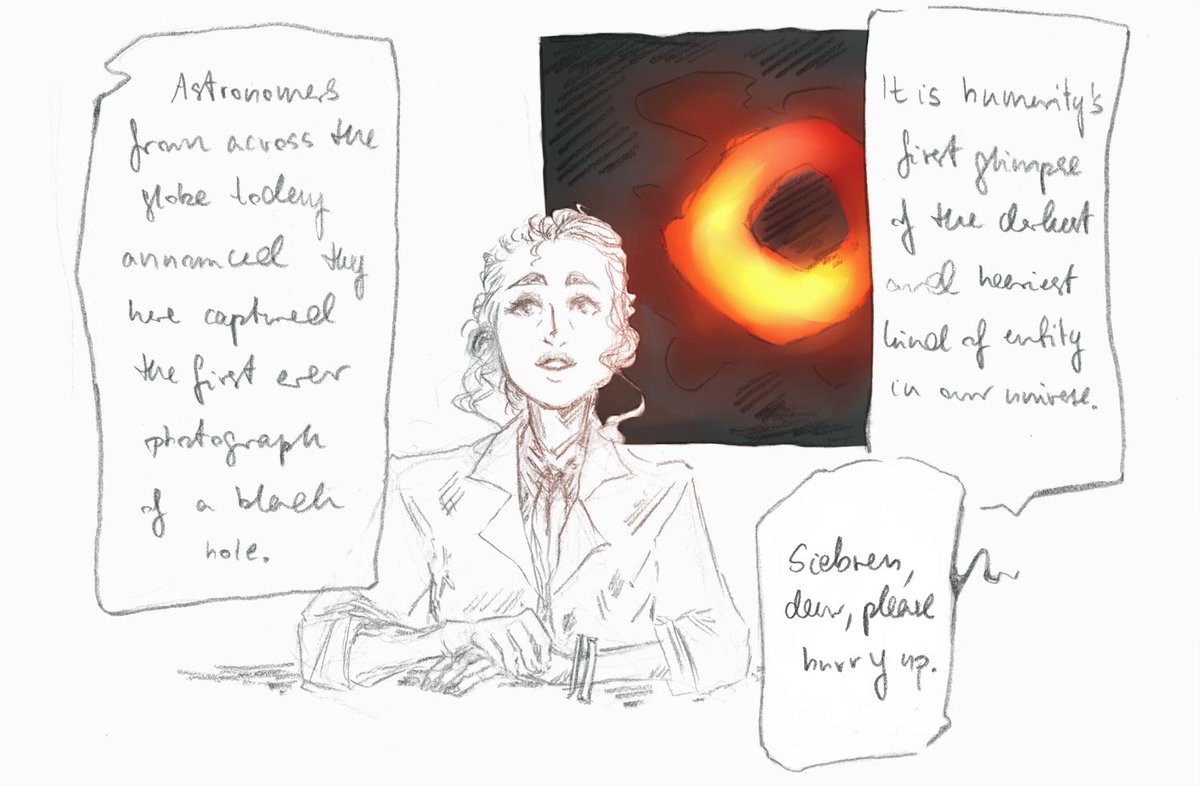 Astronomers
from across the
globe today
announced they
have captured
the first ever
photograph
of a black
hole.
It is humanity's
first glimpse
of the darkest
and heaviest
kind of entity
in our universe.
Siebren,
dear, please
hurry up.